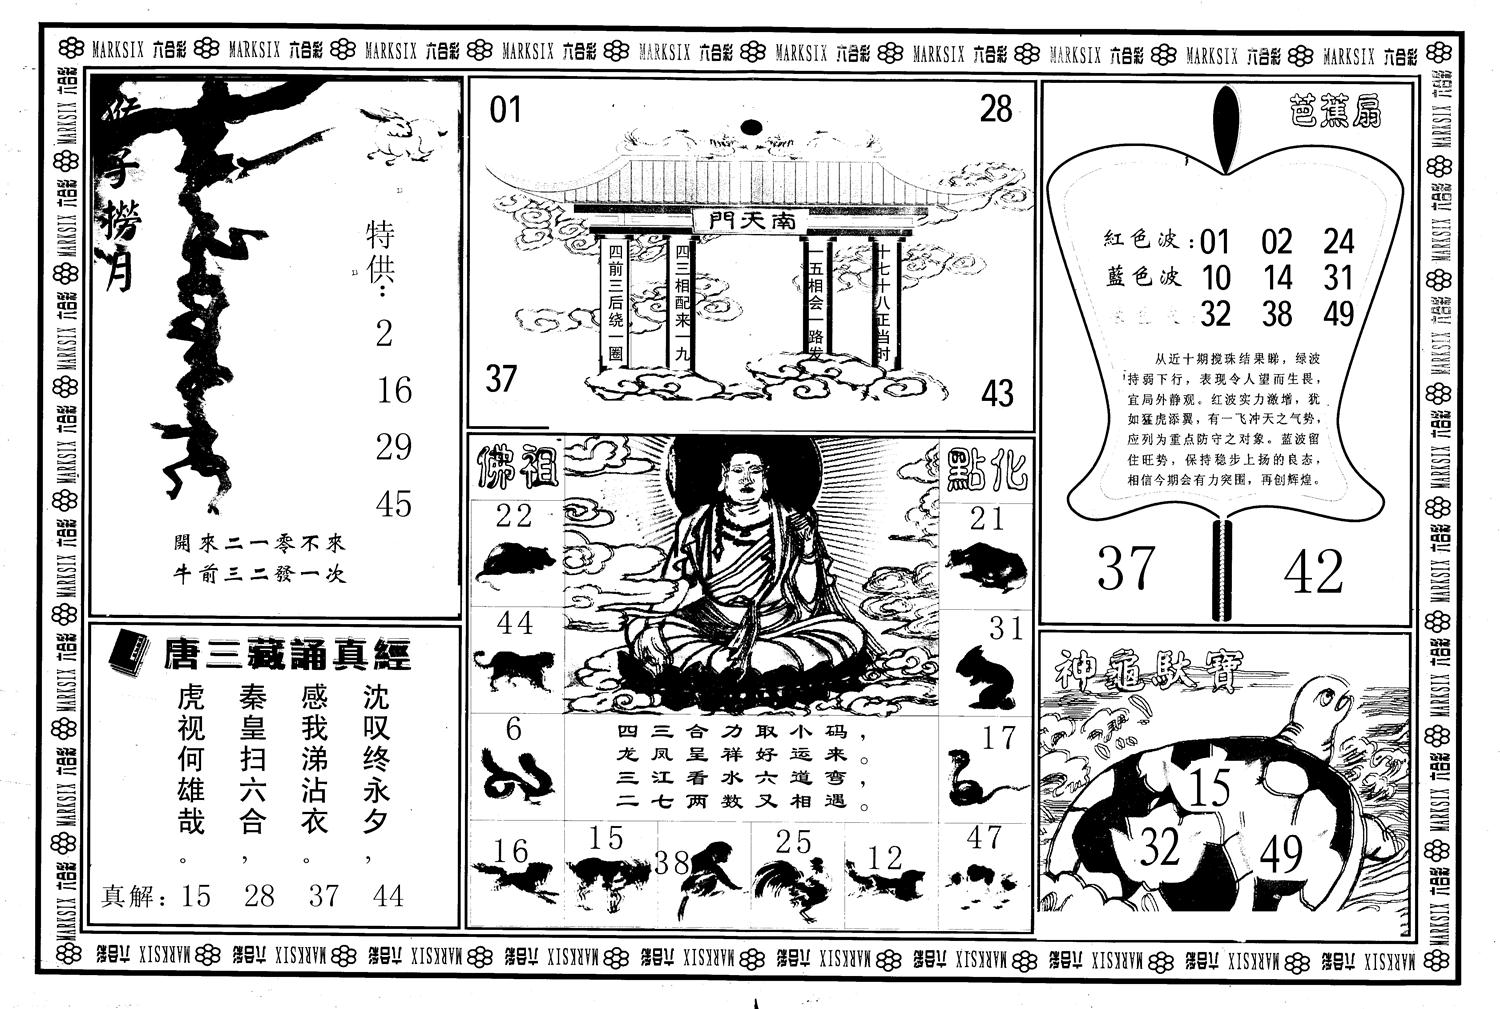 MARKSIX 六合彩 MARKSIX 六合彩 MARKSIX 六合彩 MARKSIX 六合彩 MARKSIX 六合彩 MARKSIX 六合彩 MARKSIX 六合彩 MARKSIX 六合彩 MARKSIX 六合彩 MARKSIX 六合彩
猴子撈月
特供：
2
16
29
45
開來二一零不來
牛前三二發一次
01
28
南天門
四前三后绕一圈
四三相配来一九
一五相会一路发
十七十八正当时
37
43
芭蕉扇
紅色波：01 02 24
藍色波 10 14 31
32 38 49
从近十期搅珠结果睇，绿波
持弱下行，表现令人望而生畏，
宜局外静观。红波实力激增，犹
如猛虎添翼，有一飞冲天之气势，
应列为重点防守之对象。蓝波留
住旺势，保持稳步上扬的良态，
相信今期会有力突围，再创辉煌。
37
42
唐三藏誦真經
沈叹终永夕，
感我涕沾衣。
秦皇扫六合，
虎视何雄哉。
真解：15 28 37 44
佛祖
點化
22
21
44
31
6
17
四三合力取小码，
龙凤呈祥好运来。
三江看水六道弯，
二七两数又相遇。
16
15
38
25
12
47
神龜馱寶
15
32
49
MARKSIX 六合彩 MARKSIX 六合彩 MARKSIX 六合彩 MARKSIX 六合彩 MARKSIX 六合彩 MARKSIX 六合彩 MARKSIX 六合彩 MARKSIX 六合彩 MARKSIX 六合彩 MARKSIX 六合彩